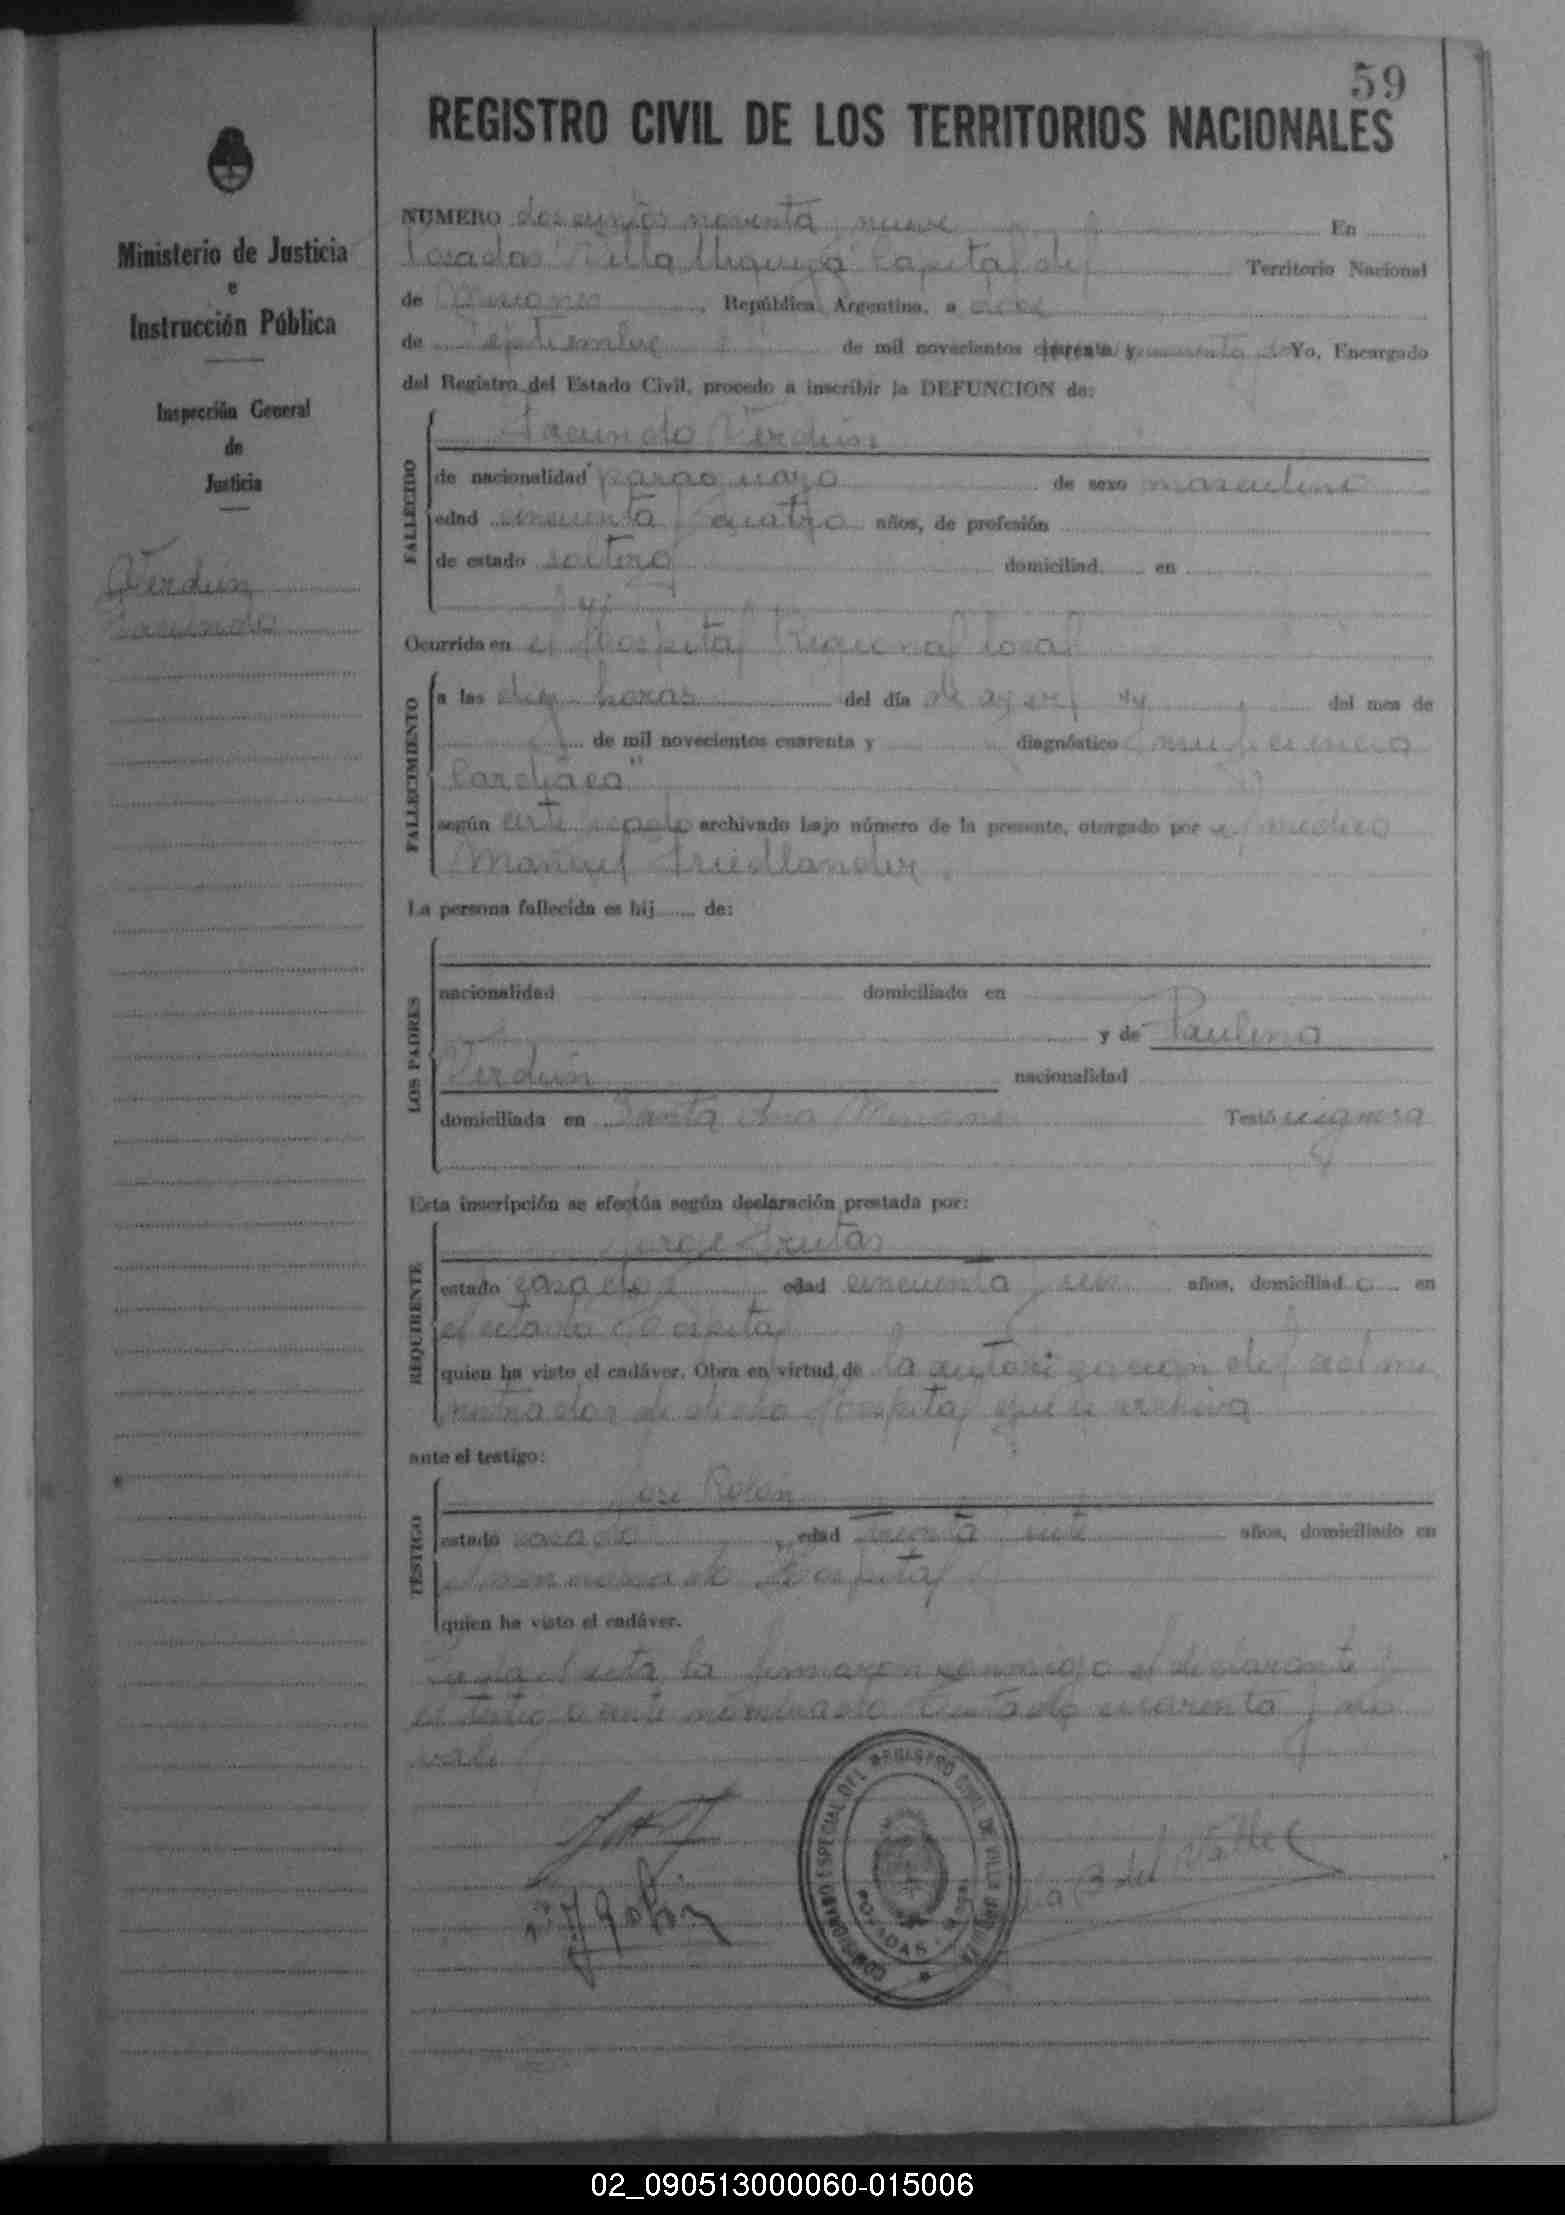 59
REGISTRO CIVIL DE LOS TERRITORIOS NACIONALES
Ministerio de Justicia
e
Instrucción Pública
Inspección General
de
Justicia
Verdún
Facundo
NUMERO doscientos noventa nueve En
Posadas Villa Urquiza Capital del Territorio Nacional
de Misiones, República Argentina, a doce
de Septiembre de mil novecientos cuarenta y Yo, Encargado
del Registro del Estado Civil, procedo a inscribir la DEFUNCION de:
FALLECIDO
Facundo Verdún
de nacionalidad paraguayo de sexo masculino
edad cincuenta y cuatro años, de profesión
de estado soltero domiciliad en
Ocurrida en el Hospital Regional local
FALLECIMIENTO
a las diez horas del día de ayer del mes de
de mil novecientos cuarenta y diagnóstico
Cardíaca"
según certificado archivado bajo número de la presente, otorgado por el médico
Manuel Friedlander
La persona fallecida es hij de:
LOS PADRES
nacionalidad domiciliado en
y de Paulina
Verdún nacionalidad
domiciliada en Santa Ana Misiones Testó
Esta inscripción se efectúa según declaración prestada por:
REQUIRENTE
Jorge Frutas
estado casado edad cincuenta años, domiciliad o en
el citado Hospital
quien ha visto el cadáver. Obra en virtud de la autorización del admi
nistrador de dicho Hospital que se archiva
ante el testigo:
TESTIGO
José Rolón
estado casado, edad treinta años, domiciliado en
el mencionado Hospital
quien ha visto el cadáver.
Leída el acta la firmaron conmigo el declarante y
el testigo ante nombrado Testado cuarenta y no
vale
COMISIONADO ESPECIAL DEL REGISTRO CIVIL DE VILLA URQUIZA
POSADAS
B del Valle
02_090513000060-015006